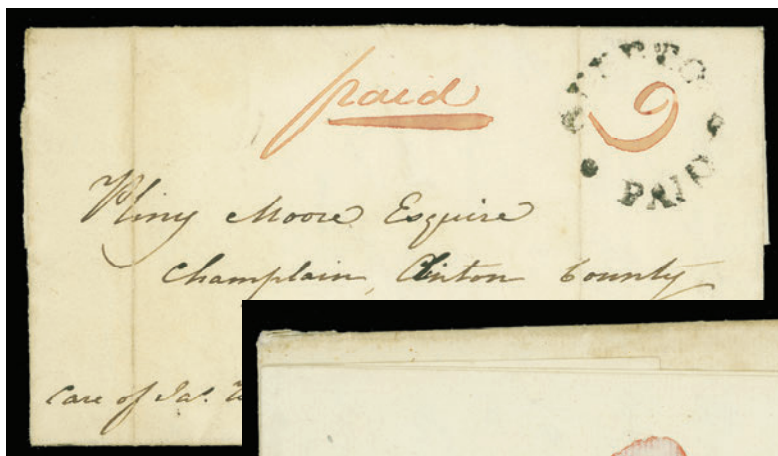 paid
QUEBEC
9
PAID
Pliny Moore Esquire
Champlain, Clinton County
Care of Jas.